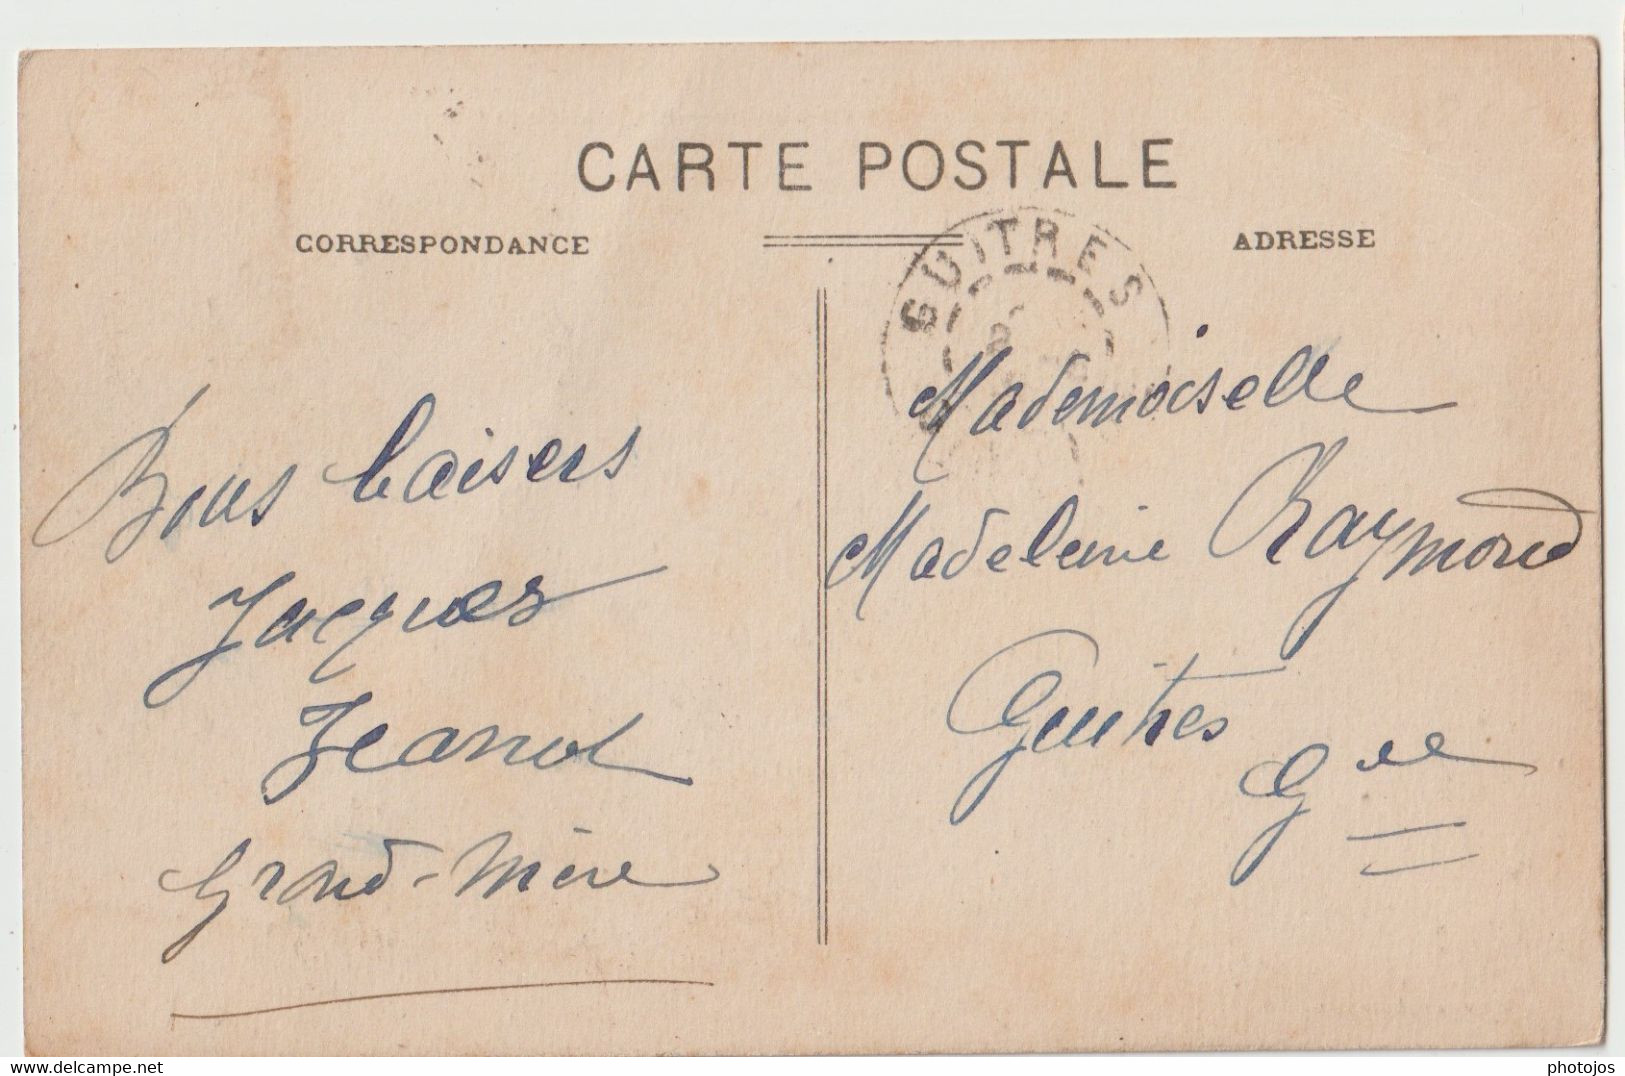 CARTE POSTALE
CORRESPONDANCE
ADRESSE
GUITRES
Bons baisers
Jacques
Jeanot
Grand-mère
Mademoiselle
Madeleine Raymond
Guitres
Gde
delcampe.net
photojos